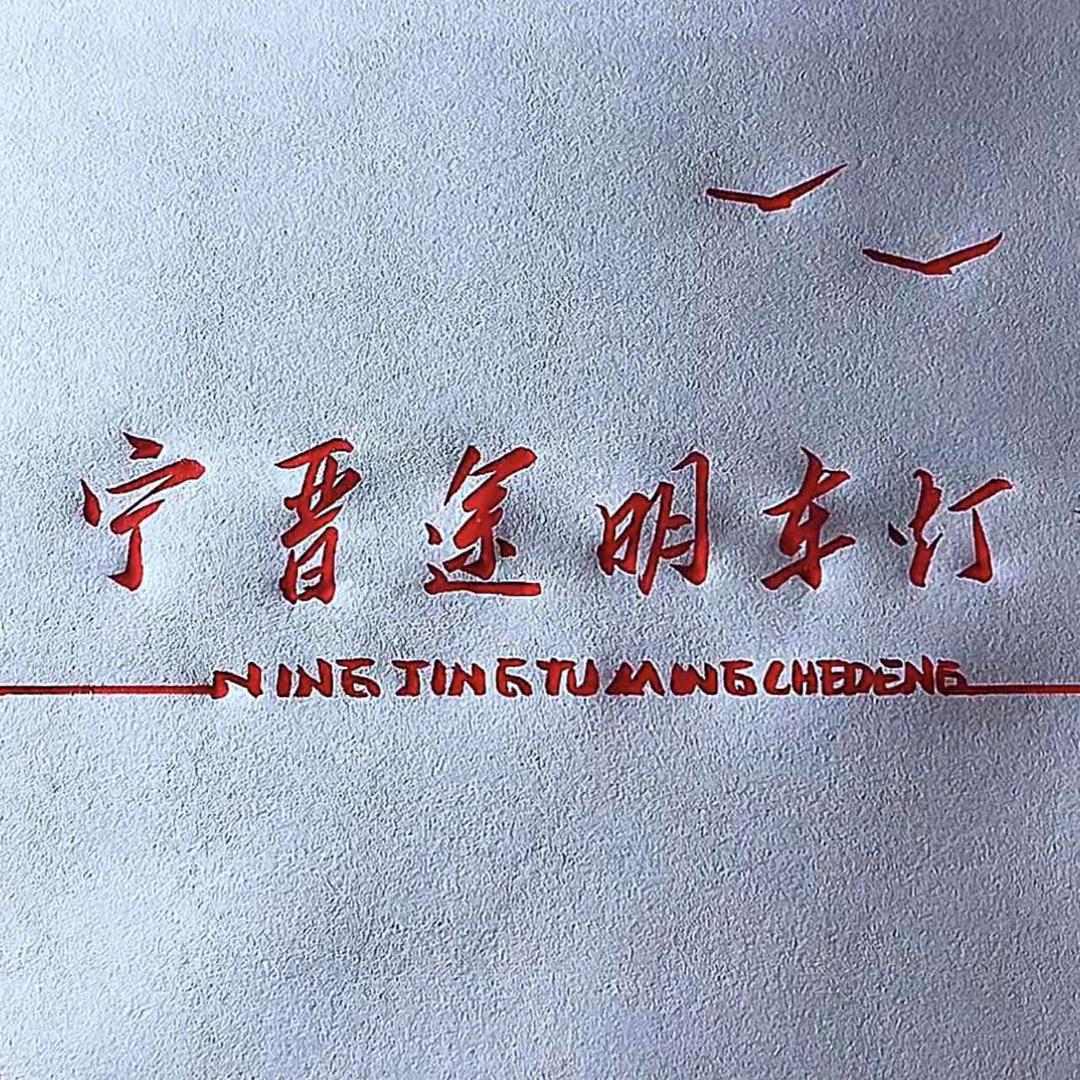 宁晋途明车灯
NING JING TU MING CHEDENG